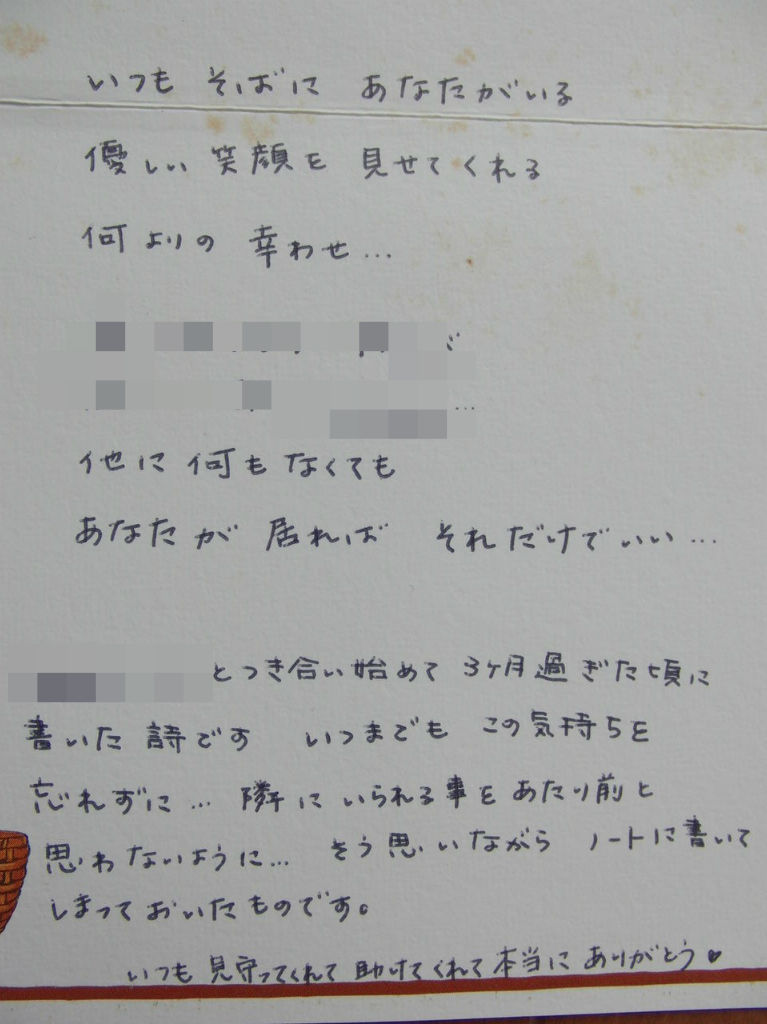 いつも そばに あなたがいる
優しい 笑顔を 見せてくれる
何よりの 幸わせ…
他に 何も なくても
あなたが 居れば それだけでいい…
とつき合い始めて 3ヶ月過ぎた頃に
書いた 詩です いつまでも この気持ちを
忘れずに… 隣に いられる事を あたり前と
思わないように… そう思いながら ノートに書いて
しまっておいたものです。
いつも 見守ってくれて 助けてくれて 本当に ありがとう♥